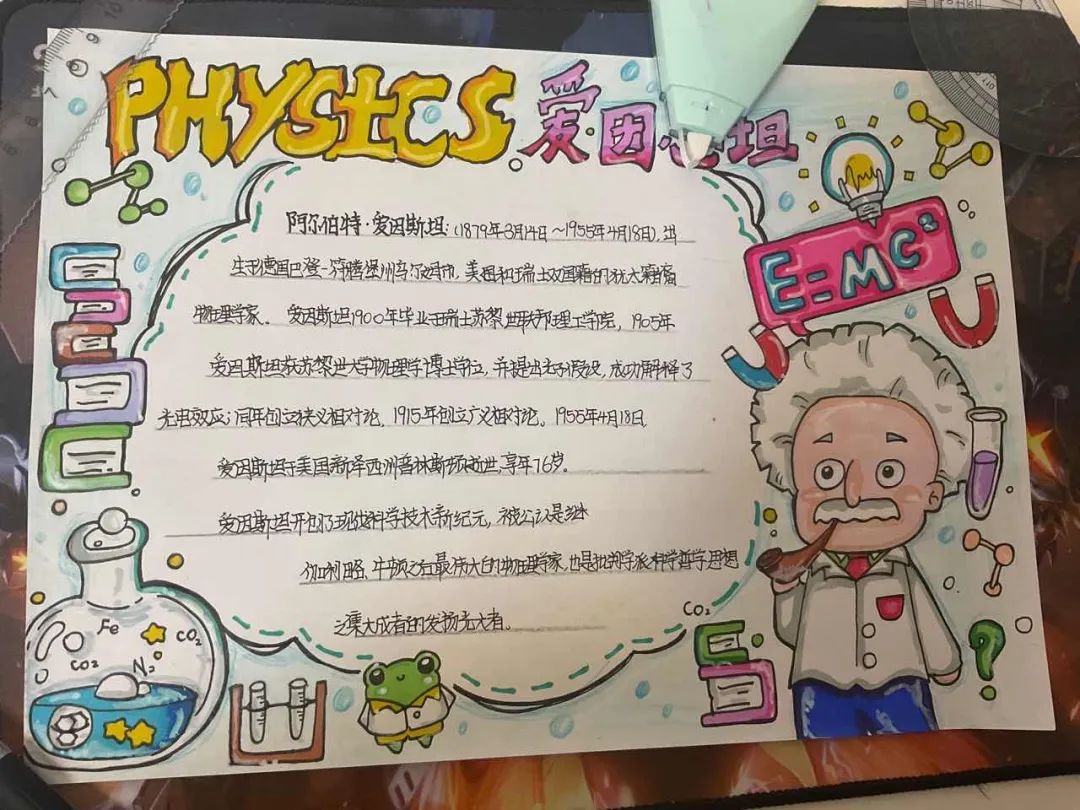 PHYSICS 爱因 坦
E=MC²
阿尔伯特·爱因斯坦:(1879年3月14日~1955年4月18日),出
生于德国巴登-符腾堡州乌尔姆市,美国和瑞士双国籍的犹太裔
物理学家。爱因斯坦1900年毕业于瑞士苏黎世联邦理工学院,1905年
爱因斯坦获苏黎世大学物理学博士学位,并提出光子假设,成功解释了
光电效应;同年创立狭义相对论,1915年创立广义相对论。1955年4月18日
爱因斯坦于美国新泽西州普林斯顿逝世,享年76岁。
爱因斯坦开创了现代科学技术新纪元,被公认是继
伽利略、牛顿之后最伟大的物理学家,也是批判学派科学哲学思想
之集大成者的发扬光大者。
Fe
CO₂
CO₂
N₂
CO₂
?